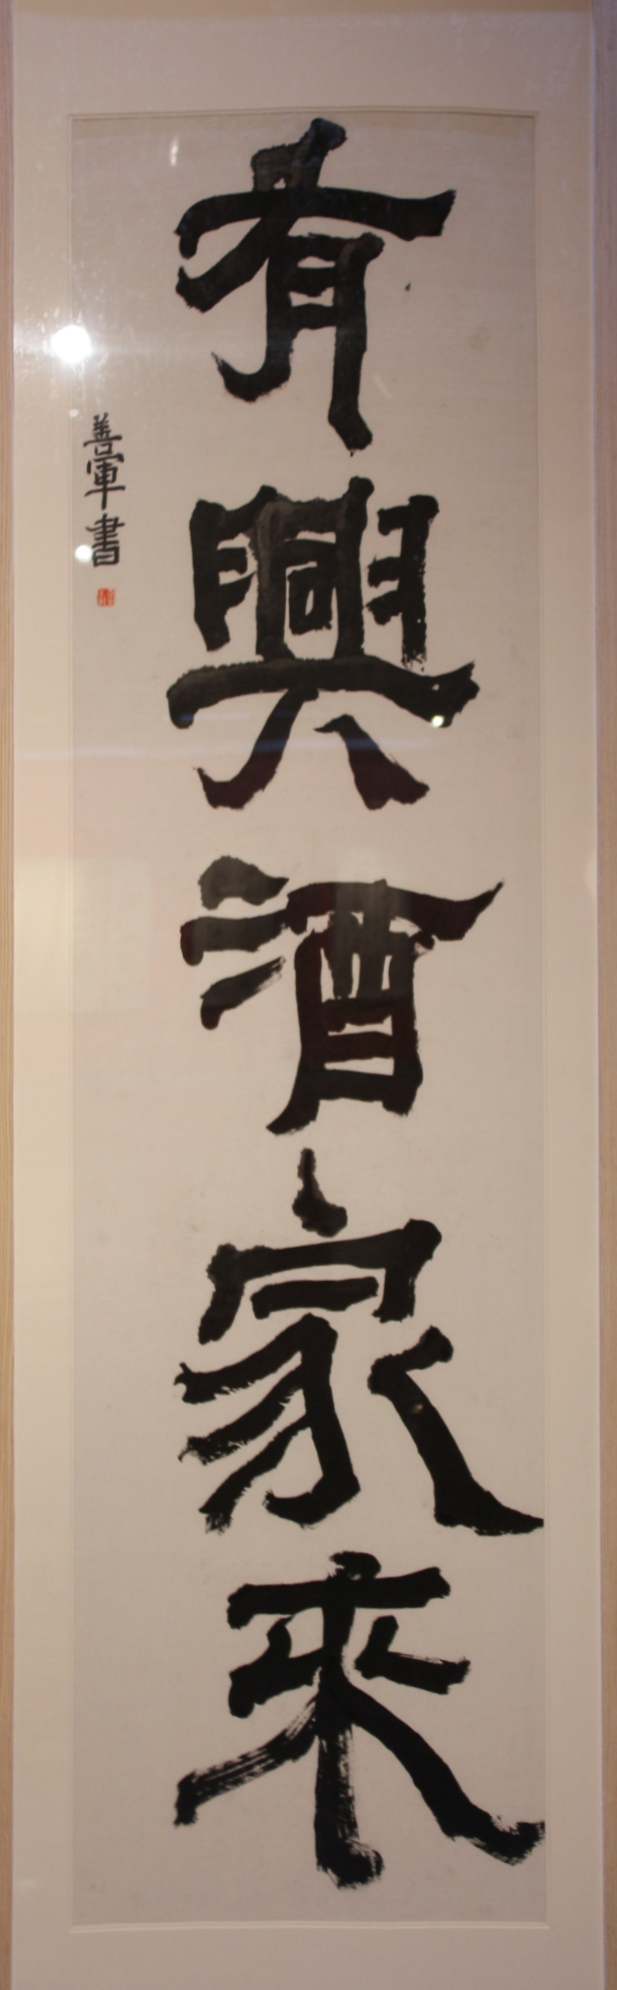 有興酒家來
善軍書